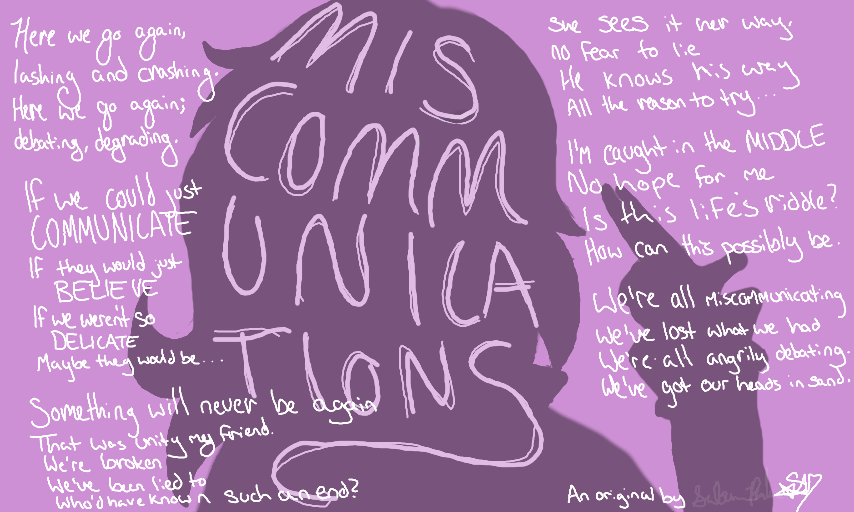 MIS
COMM
UNICA
TIONS
Here we go again,
lashing and crashing.
Here we go again;
debating, degrading.
If we could just
COMMUNICATE
If they would just
BELIEVE
If we weren't so
DELICATE
Maybe they would be...
Something will never be again
That was unity my friend.
We're broken
We've been lied to
Who'd have known such an end?
She sees it her way.
no fear to lie
He knows his way
All the reason to try...
I'm caught in the MIDDLE
No hope for me
Is this life's riddle?
How can this possibly be.
We're all miscommunicating
We've lost what we had
We're all angrily debating.
We've got our heads in sand.
An original by